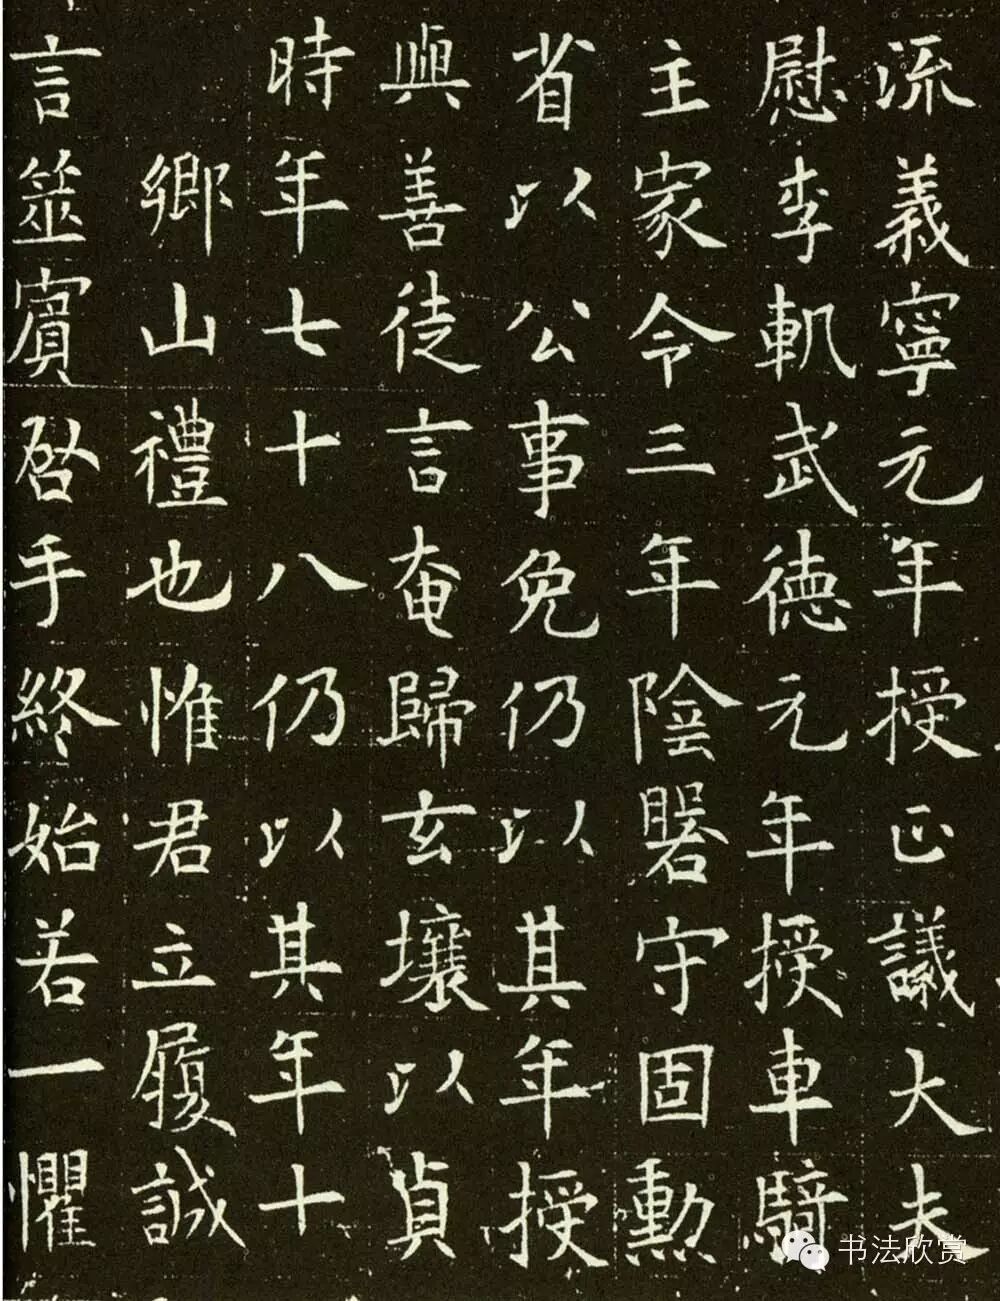 流義寧元年授正議大夫
慰李軌武德元年授車騎
主家令三年陰署守固勳
省以公事免仍以其年授
與善徒言奄歸玄壤以貞
時年七十八仍以其年十
鄉山禮也惟君立履誠
言筮賓啓手終始若一懼
书法欣赏